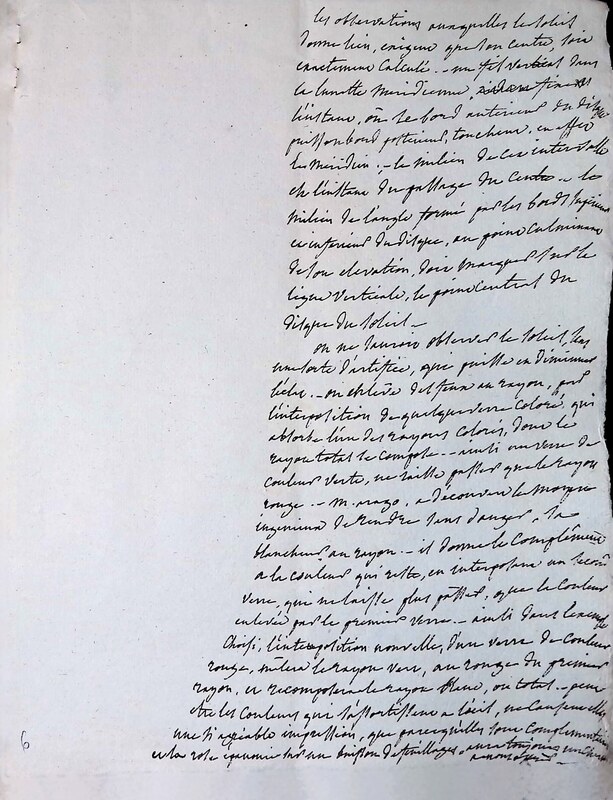 les observations auxquelles le soleil
donne lieu, exigent que son centre, soit
exactement calculé. - un fil vertical dans
la lunette méridienne, fixe
l'instant, où le bord antérieur du disque
puis son bord postérieur, touchent, en effet
le méridien; - le milieu de cet intervalle
est l'instant du passage du centre. - le
milieu de l'angle formé par les bords supérieur
et inférieur du disque, au point culminant
de son elevation, doit marquer sur la
ligne verticale, le point central du
disque du soleil -
on ne sauroit observer le soleil, sans
une sorte d'artifice, qui puisse en diminuer
l'éclat. - on enlève des feux au rayon, par
l'interposition de quelque verre coloré, qui
absorbe l'un des rayons colorés, dont le
rayon total se compose - ainsi un verre de
couleur verte, ne laisse passer que le rayon
rouge. - m. arago, a découvert le moyen
ingenieux de rendre sans danger, la
blancheur au rayon. - il donne le complément
a la couleur qui reste, en interposant un second
verre, qui ne laisse plus passer, que la couleur
enlevée par le premier verre. - ainsi dans l'exemple
choisi, l'interposition nouvelle, d'un verre de couleur
rouge, mêlera le rayon vert, au rouge du premier
rayon, et recomposera le rayon blanc, ou total - peut
être les couleurs qui s'assortissent a l'œil, ne
une si agréable impression, que parcequ'elles sont complémentaires
et la rose épanouie sur un buisson de feuillages, aura toujours
a nos yeux -
6